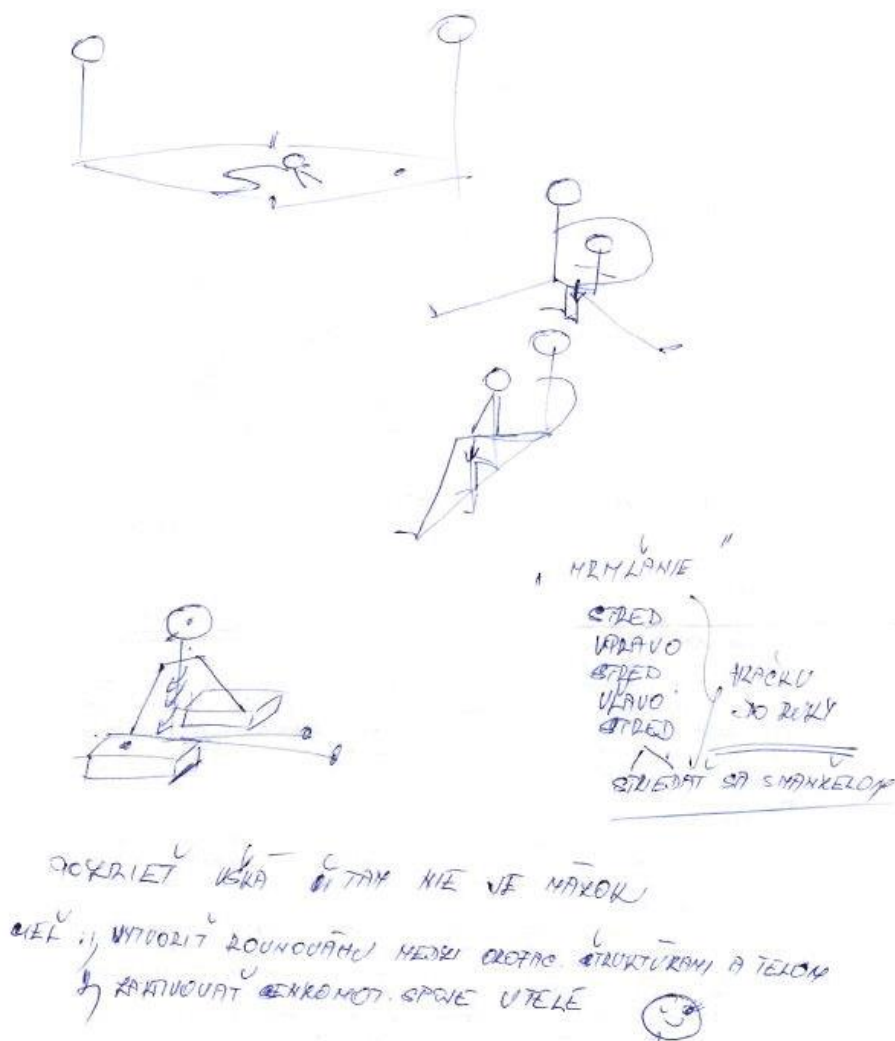 „ MRMLANIE "
STRED
VPRAVO
STRED
VĽAVO
STRED
HRAČKU
DO RUKY
STRIEDAŤ SA S MANŽELOM
POZRIEŤ UŠKÁ ČI TAM NIE JE MÄZOK
CIEĽ: 1, VYTVORIŤ ROVNOVÁHU MEDZI OROFAC. ŠTRUKTÚRAMI A TELOM
2, ZAKTIVOVAŤ SENZOMOT. SPOJE V TELE